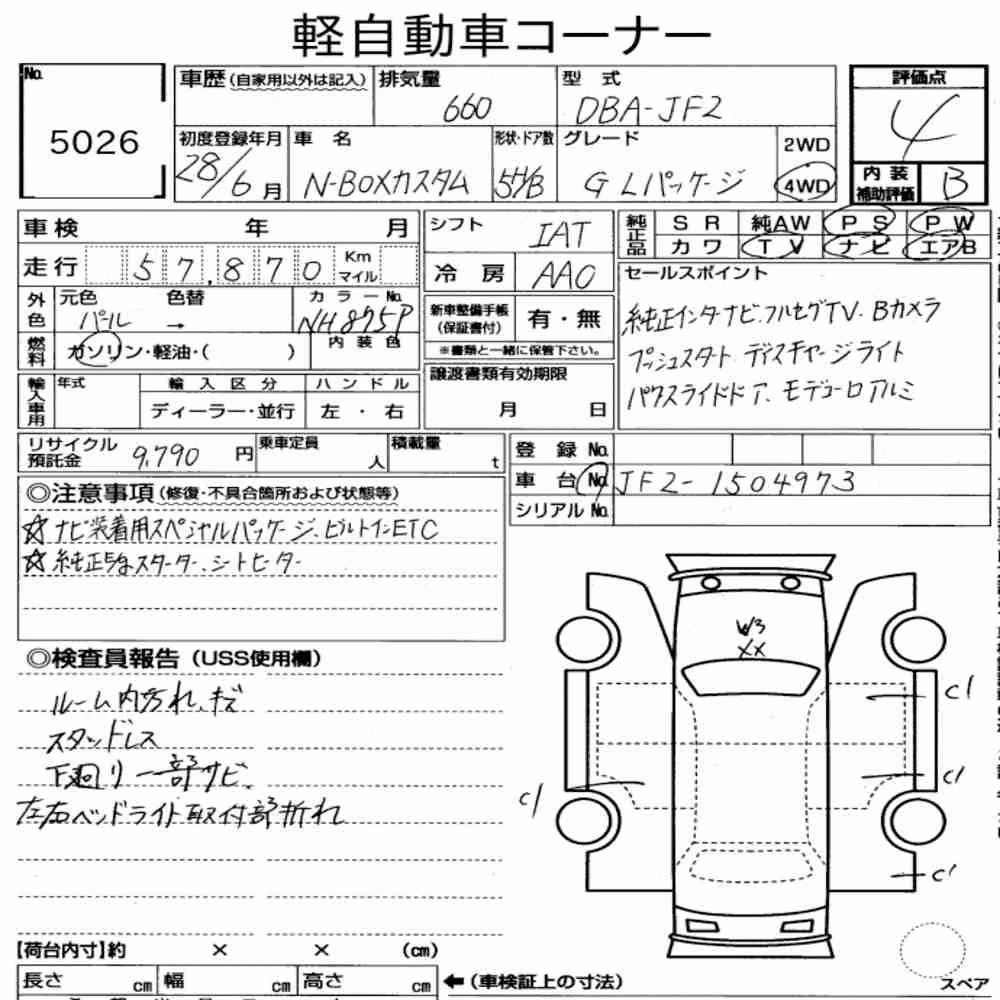 軽自動車コーナー
No.
5026
車歴(自家用以外は記入)
排気量
660
型式
DBA-JF2
評価点
4
初度登録年月
28/6月
車名
N-BOXカスタム
形状・ドア数
5H/B
グレード
G Lパッケージ
2WD
4WD
内装
補助評価
B
車検 年 月
シフト
IAT
純正品
SR 純AW PS PW
カワ TV ナビ エアB
走行
57,870
Km
マイル
冷房
AAC
セールスポイント
純正インターナビ.フルセグTV.Bカメラ
プッシュスタート ディスチャージライト
パワースライドドア.モデューロアルミ
外色
元色 色替
パール →
カラーNo.
NH875P
内装色
新車整備手帳
(保証書付)
有・無
※書類と一緒に保管下さい。
燃料
ガソリン・軽油・( )
譲渡書類有効期限
月 日
輸入車用
年式
輸入区分
ディーラー・並行
ハンドル
左・右
リサイクル
預託金
9,790 円
乗車定員
人
積載量
t
登録No.
車台No.
JF2-1504973
シリアルNo.
◎注意事項(修復・不具合箇所および状態等)
☆ナビ装着用スペシャルパッケージ、ビルトインETC
☆純正エンジンスターター、シートヒーター
◎検査員報告(USS使用欄)
ルーム内汚れ、キズ
スタッドレス
下廻り一部サビ、
左右ヘッドライト取付部折れ
W3
XX
C1
C1
C1
C1
【荷台内寸】約 × × (cm)
長さ cm 幅 cm 高さ cm
←(車検証上の寸法)
スペア